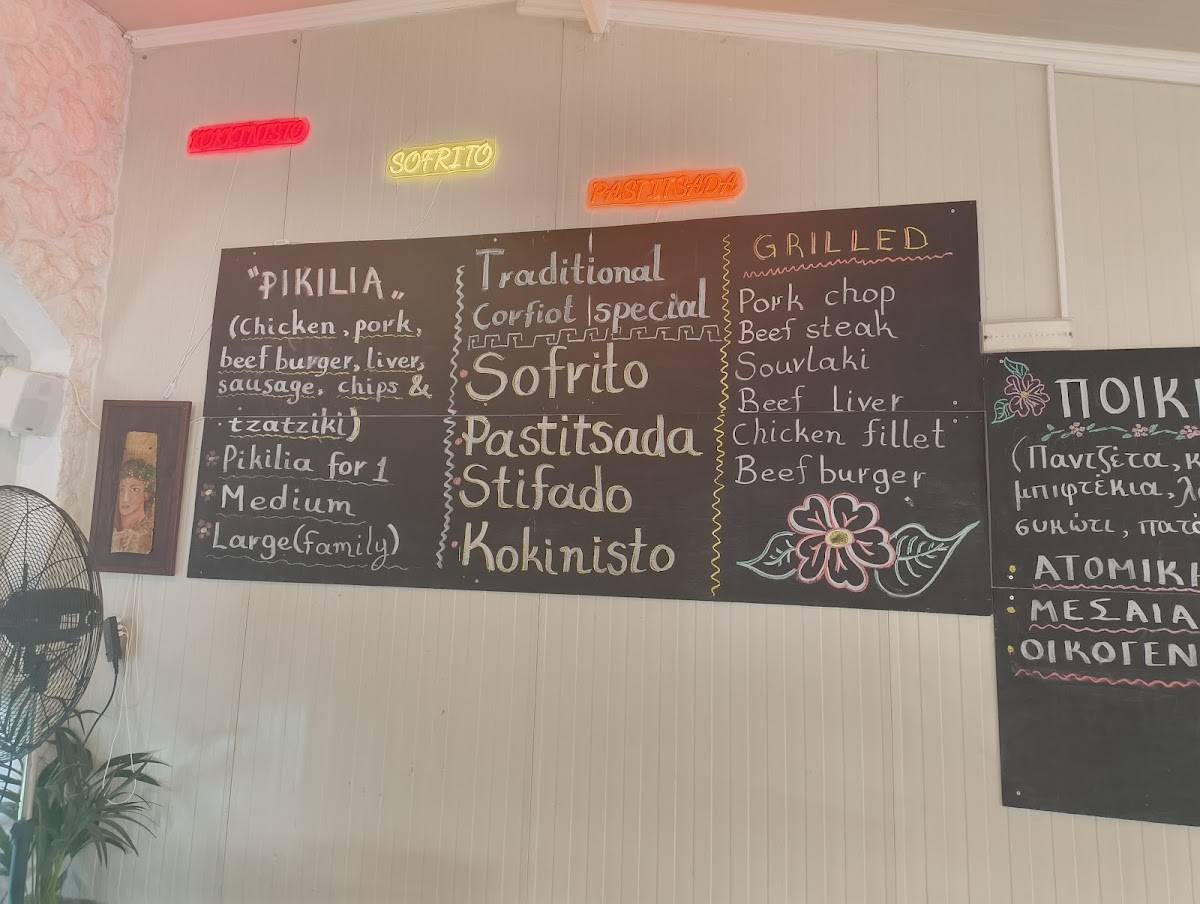 KOKKINISTO
SOFRITO
PASTITSADA
"PIKILIA„
(Chicken, pork,
beef burger, liver,
sausage, chips &
tzatziki)
Pikilia for 1
Medium
Large(family)
Traditional
Corfiot special
Sofrito
Pastitsada
Stifado
Kokinisto
GRILLED
Pork chop
Beef steak
Souvlaki
Beef Liver
Chicken fillet
Beef burger
(Παντζέτα,
μπιφτέκια,
συκώτι,